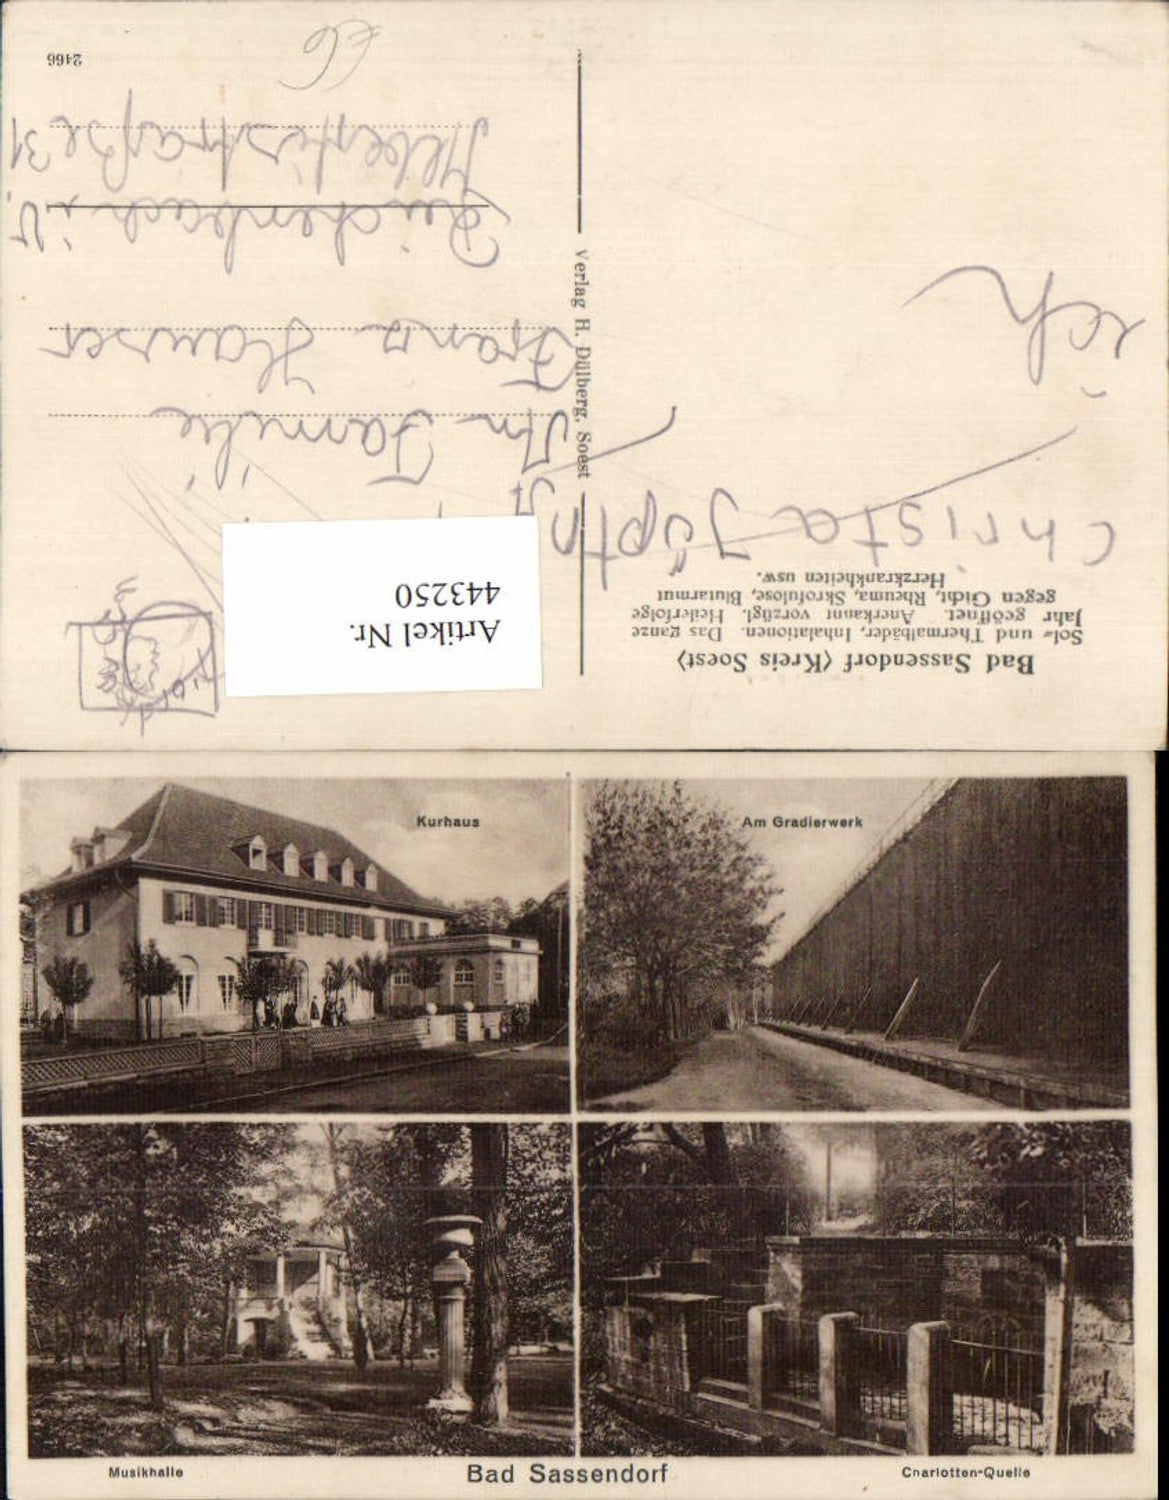 Bad Sassendorf (Kreis Soest)
Sol- und Thermalbäder, Inhalationen. Das ganze
Jahr geöffnet. Anerkannt vorzügl. Heilerfolge
gegen Gicht, Rheuma, Skrofulose, Blutarmut
Herzkrankheiten usw.
Christa
ich
Verlag H. Dülberg, Soest
Artikel Nr.
443250
An Familie
Franz Hauser
Reichenbach i. V.
straße 31
2466
Kurhaus
Am Gradierwerk
Musikhalle
Bad Sassendorf
Charlotten-Quelle